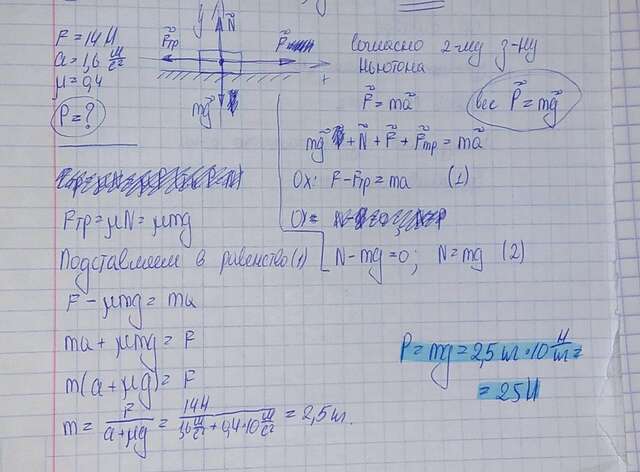 F = 14 Н
a = 1,6 м/с²
μ = 0,4
P = ?
y
N
Fтр
F
x
mg
Согласно 2-му з-ну
Ньютона
F = ma
вес P = mg
mg + N + F + Fтр = ma
OX: F - Fтр = ma (1)
OY:
N - mg = 0; N = mg (2)
Fтр = μN = μmg
Подставляем в равенство (1)
F - μmg = ma
ma + μmg = F
m(a + μg) = F
m = F/(a + μg) = 14Н/(1,6 м/с² + 0,4·10 м/с²) = 2,5 кг.
P = mg = 2,5 кг · 10 Н/кг =
= 25 Н